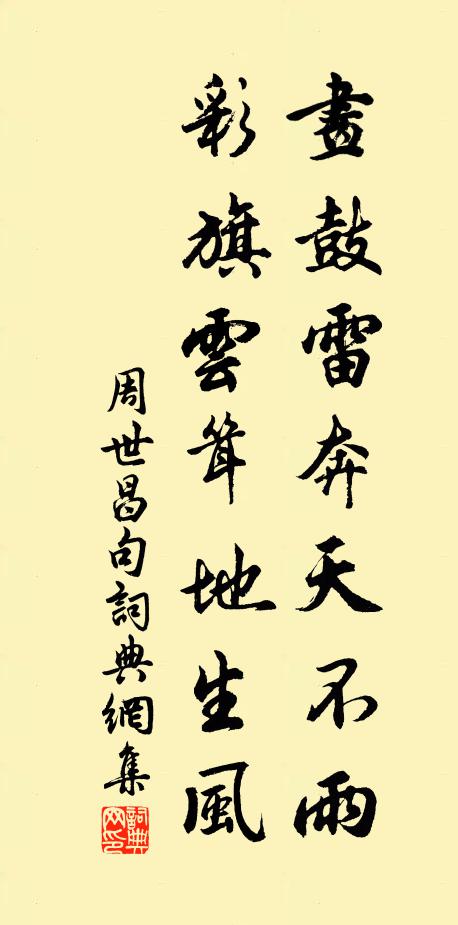 畫鼓雷奔天不雨
彩旗雲聳地生風
周世昌句詞典網集
詞典網印